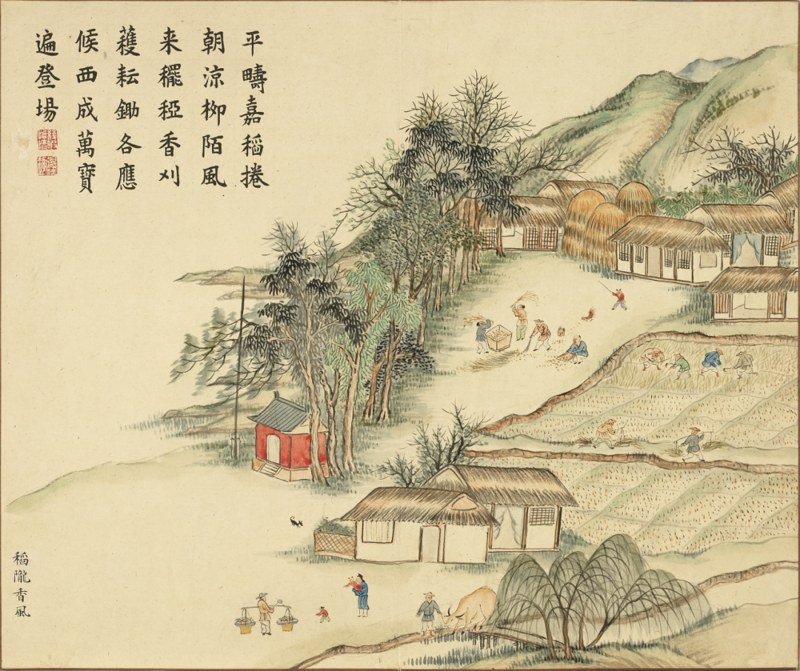 平疇嘉稻捲
朝涼柳陌風
来穲稏香刈
穫耘鋤各應
候西成萬寶
遍登場
稻隴香風